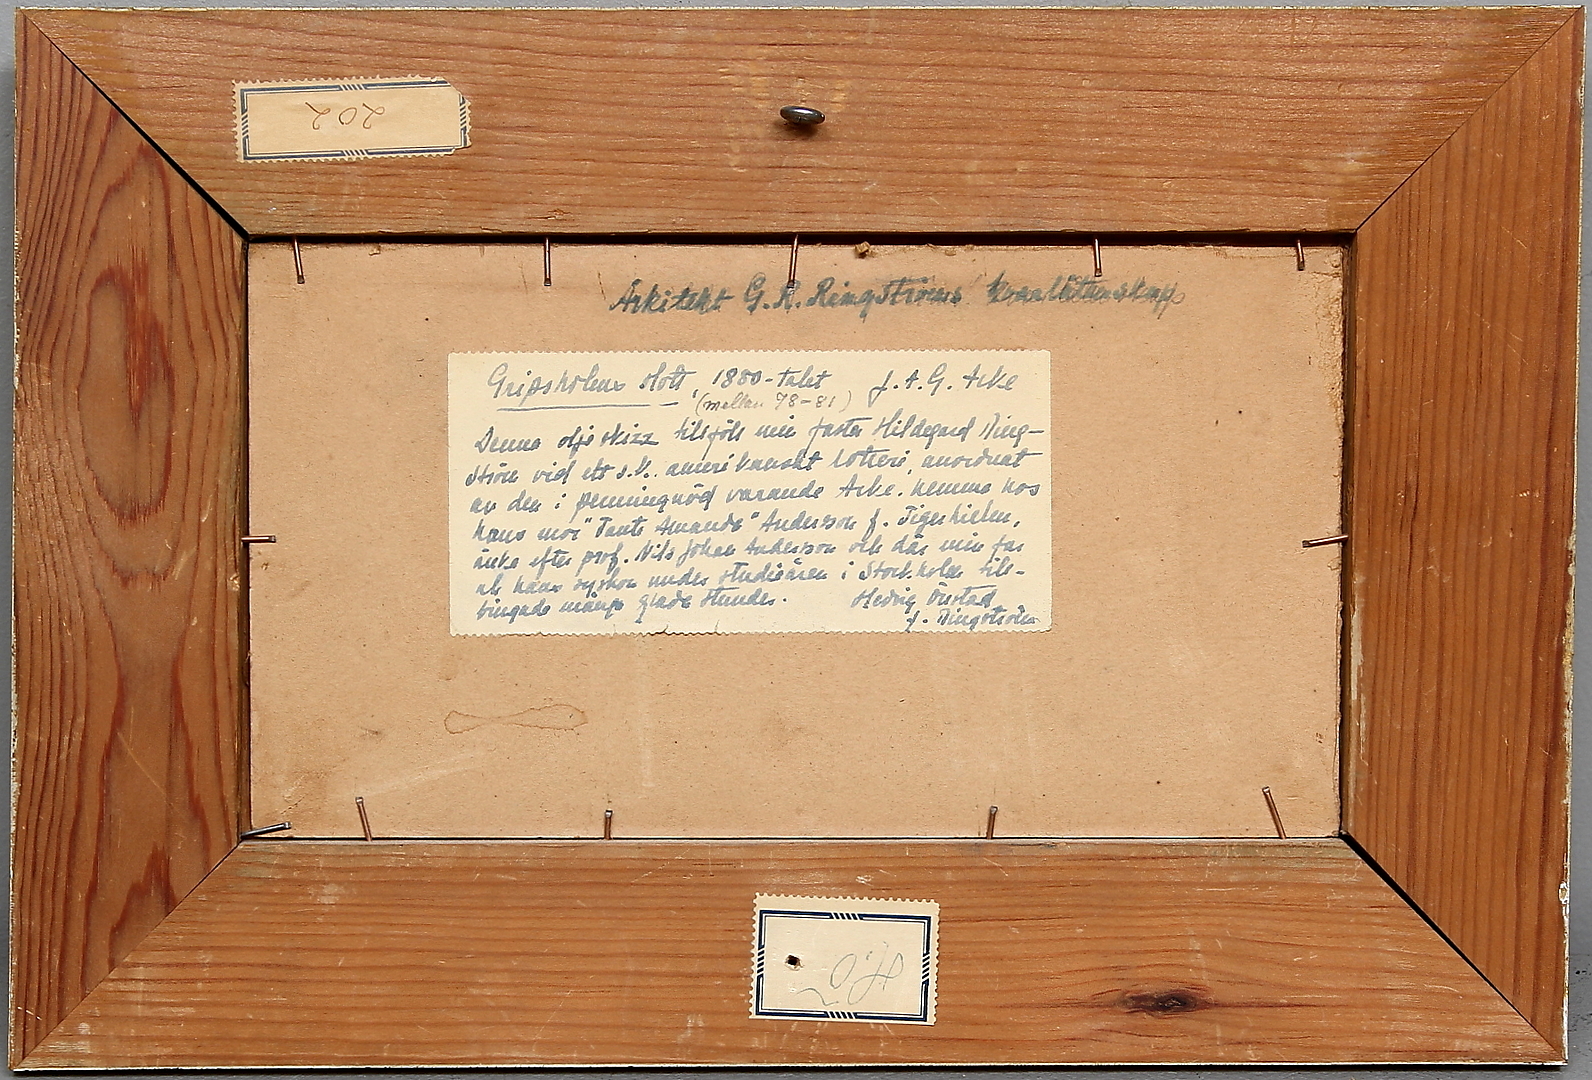 202
Arkitekt G. R. Ringströms kvarlåtenskap
Gripsholms slott, 1880-talet J. A. G. Acke
(mellan 78-81)
Denna oljeskizz tillföll min faster Hildegard Ring-
ström vid ett s.k. amerikanskt lotteri, anordnat
av den i penningnöd varande Acke, hemma hos
hans mor "Tante Amanda" Andersson f. Tigerhielm,
änka efter prof. Nils Johan Andersson och där min far
och hans syskon under studieåren i Stockholm till-
bringade många glada stunder. Hedvig Örstad
f. Ringström
H.Ö.